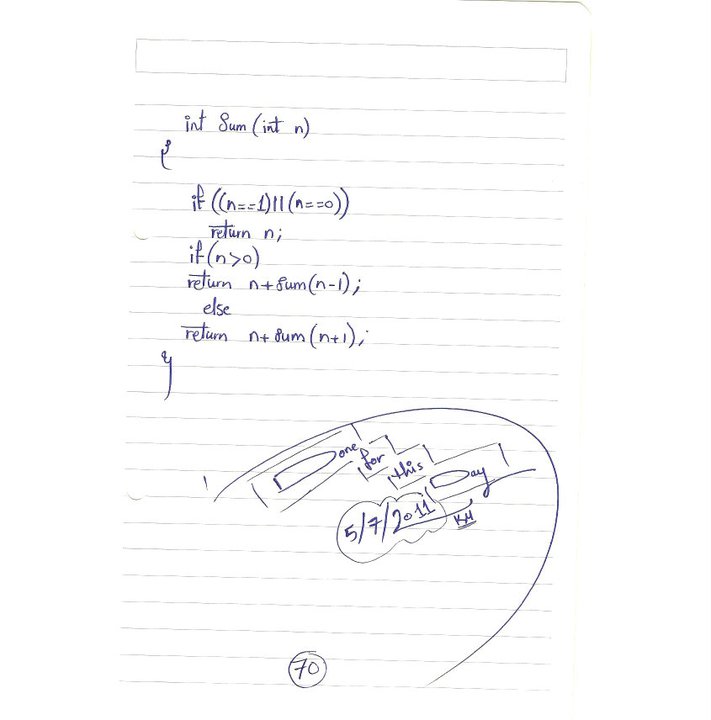 int Sum (int n)
{
if ((n==1)||(n==0))
return n;
if (n>0)
return n+sum(n-1);
else
return n+sum(n+1);
}
Done for this Day
5/7/2011
KM
70